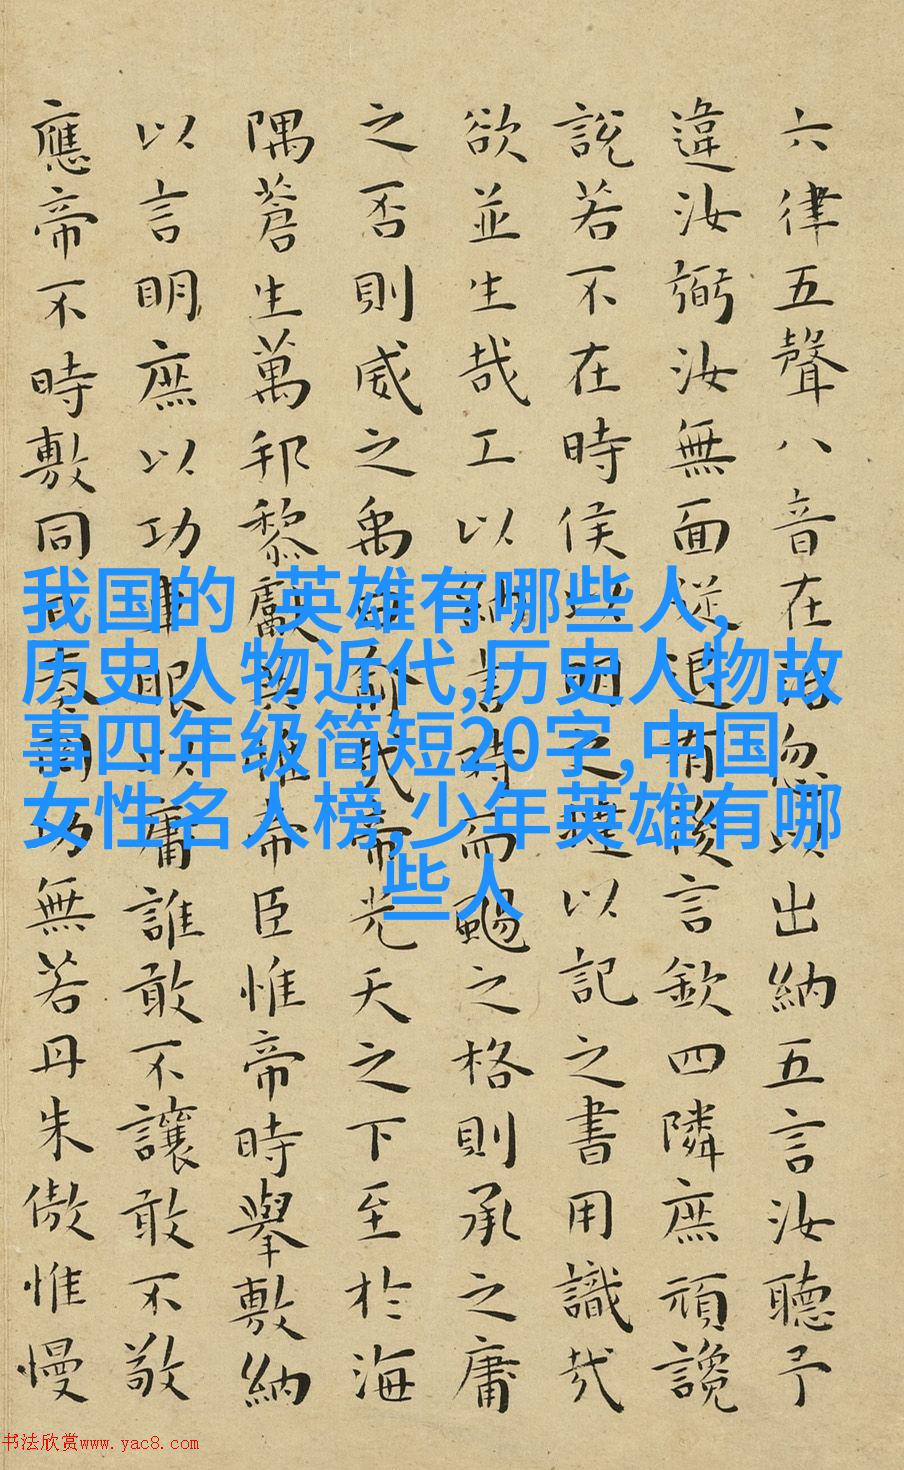 六律五聲八音在治忽以出納五言汝聽予
違汝弼汝無面從退有後言欽四隣庶頑讒
說若不在時侯以明之撻以記之書用識哉
欲並生哉工以納言時而颺之格則承之庸
之否則威之禹曰俞哉帝光天之下至於海
隅蒼生萬邦黎獻共惟帝臣惟帝時舉敷納
以言明庶以功車服以庸誰敢不讓敢不敬
應帝不時敷同日奏罔功無若丹朱傲惟慢
我国的 英雄有哪些人,
历史人物近代,历史人物故
事四年级简短20字,中国
女性名人榜,少年英雄有哪
些人
书法欣赏www.yac8.com